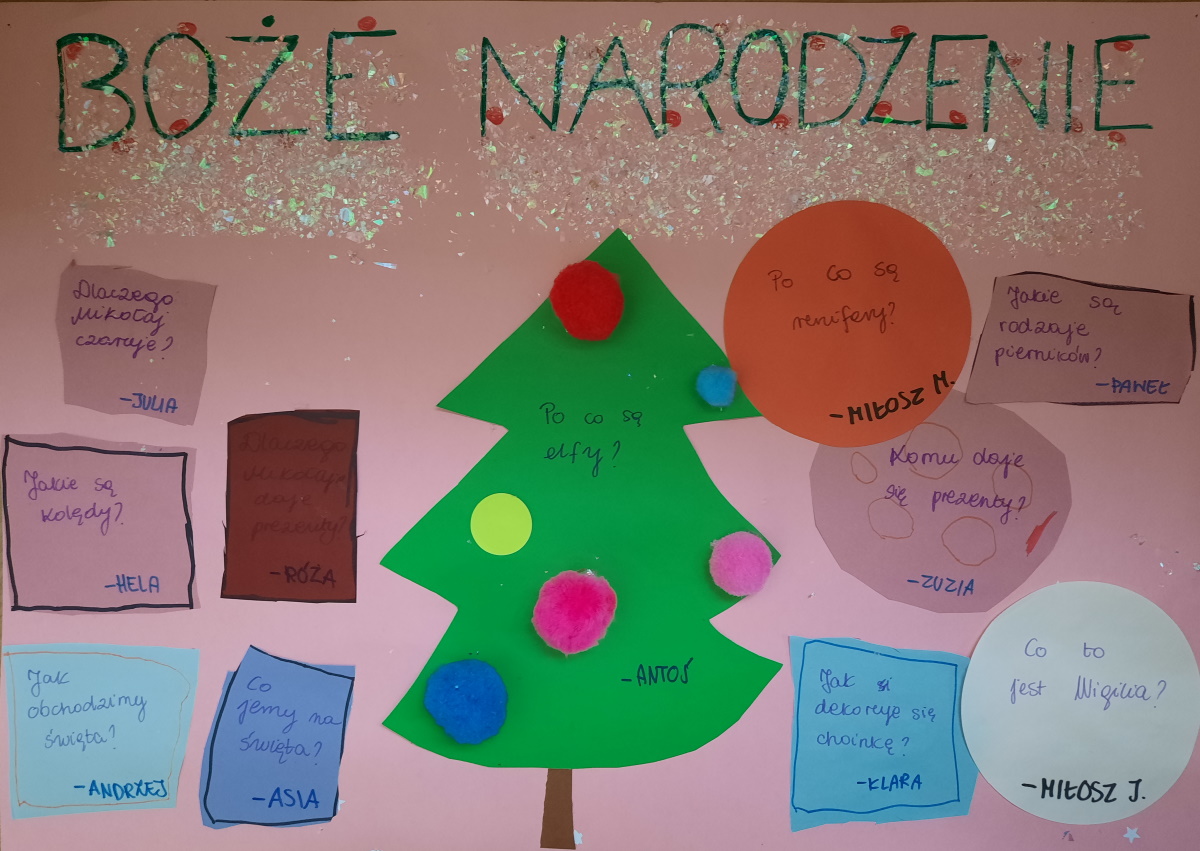 BOŻE NARODZENIE
Dlaczego
Mikołaj
czaruje?
-JULIA
Jakie są
kolędy?
-HELA
Dlaczego
Mikołaj
daje
prezenty?
-RÓŻA
Jak
obchodzimy
święta?
-ANDRZEJ
Co
jemy na
święta?
-ASIA
Po co są
elfy?
-ANTOŚ
Po co są
renifery?
-MIŁOSZ M.
Jakie są
rodzaje
pierników?
-PAWEŁ
Komu daje
się prezenty?
-ZUZIA
Jak
dekoruje się
choinkę?
-KLARA
Co to
jest Wigilia?
-MIŁOSZ J.